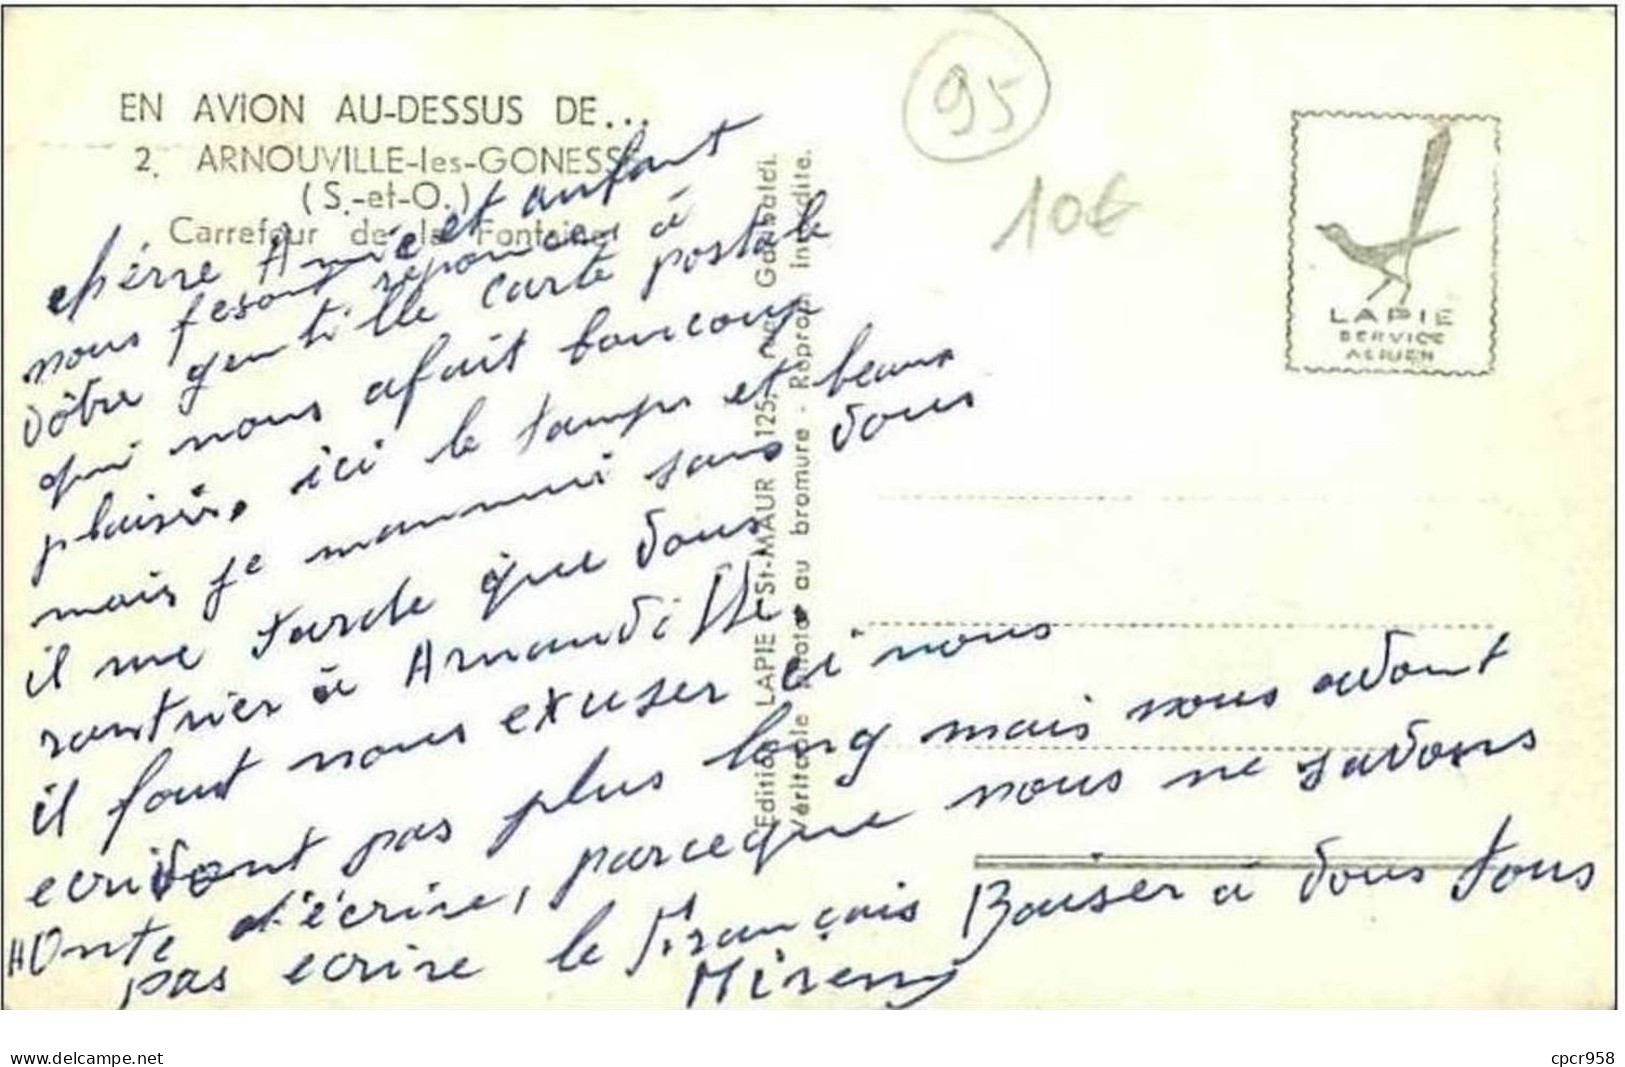 EN AVION AU-DESSUS DE...
2. ARNOUVILLE-les-GONESSE
(S.-et-O.)
Carrefour de la Fontaine
chérre Amie et anfant
nous fesont reponce à
vôtre gentille carte postale
qui nous afait boucoup
plaisir, ici le tamps et beaux
mais je mannui sans vous
il me tarde que vous
rantrier à Arnauville
il faut nous exuser ci nous
ecrivont pas plus long mais nous avont
HOnte d'écrire, parceque nous ne savons
pas ecrire le Français Baiser à vous tous
Mireny
Edition LAPIE St-MAUR 125, rue Garibaldi.
Véritable Photo au bromure - Reprod. Interdite.
95
10€
LAPIE
SERVICE
AERIEN
www.delcampe.net
cpcr958